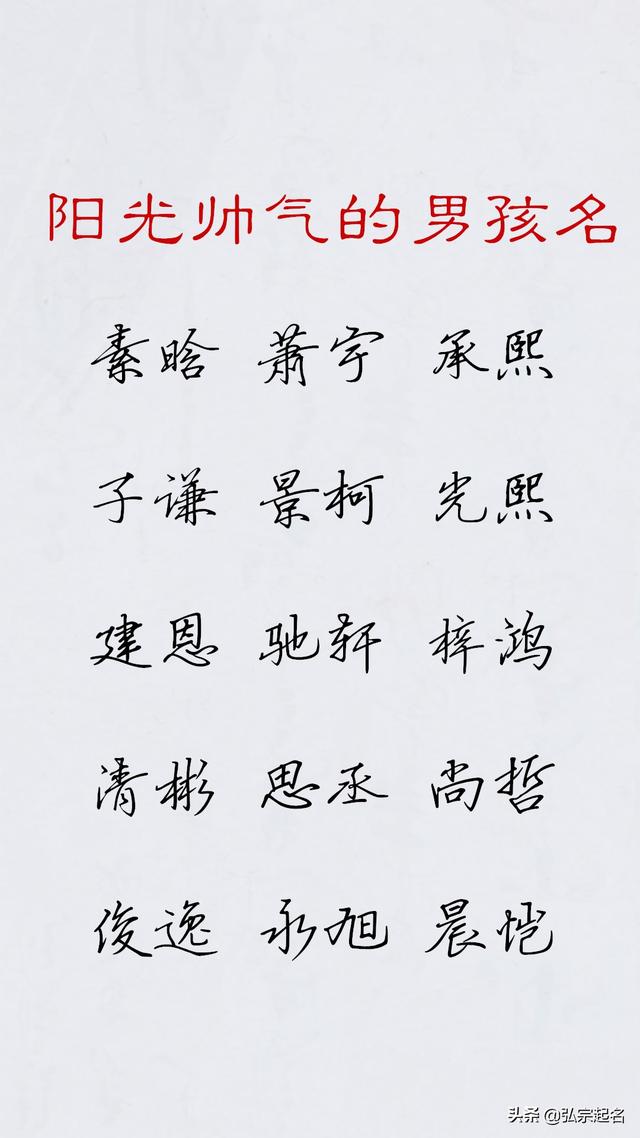 阳光帅气的男孩名
素晗 萧宇 承熙
子谦 景柯 光熙
建恩 驰轩 梓鸿
清彬 思丞 尚哲
俊逸 永旭 晨恺
头条 @弘宗起名